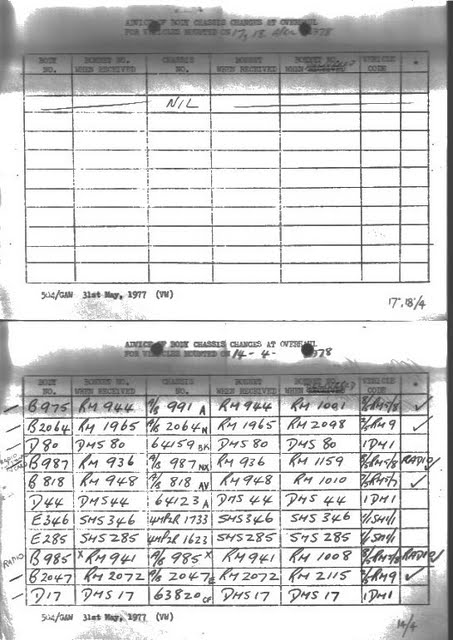 ADVICE OF BODY CHASSIS CHANGES AT OVERHAUL
FOR VEHICLES MOUNTED ON 17, 18. 1978
BODY NO. BONNET NO. WHEN RECEIVED CHASSIS NO. BONNET WHEN RECEIVED BONNET NO. WHEN VEHICLE CODE *
NIL
504/GAW 31st May, 1977 (VW)
17, 18/4
ADVICE OF BODY CHASSIS CHANGES AT OVERHAUL
FOR VEHICLES MOUNTED ON 14 - 4 - 1978
BODY NO. BONNET NO. WHEN RECEIVED CHASSIS NO. BONNET WHEN RECEIVED BONNET NO. WHEN VEHICLE CODE *
B975 RM 944 A/B 991 A RM 944 RM 1001 ✓
B2064 RM 1965 A/B 2064 N RM 1965 RM 2098 2/5RM9 ✓
D80 DMS 80 64159 BK DMS 80 DMS 80 1DM1
B987 RM 936 A/B 987 NX RM 936 RM 1159 RADIO ✓
B818 RM 948 A/B 818 AV RM 948 RM 1010 ✓
D44 DMS 44 64123 A DMS 44 DMS 44 1DM1
E346 SMS 346 4HP2R 1733 SMS 346 SMS 346 1/SM1/1
E285 SMS 285 4HP2R 1623 SMS 285 SMS 285 1/SM1/1
RADIO B985 X RM 941 A/B 985 X RM 941 RM 1008 RADIO ✓
B2047 RM 2072 A/B 2047 E RM 2072 RM 2115 2/5RM9 ✓
D17 DMS 17 63820 CF DMS 17 DMS 17 1DM1
504/GAW 31st May, 1977 (VW)
14/4